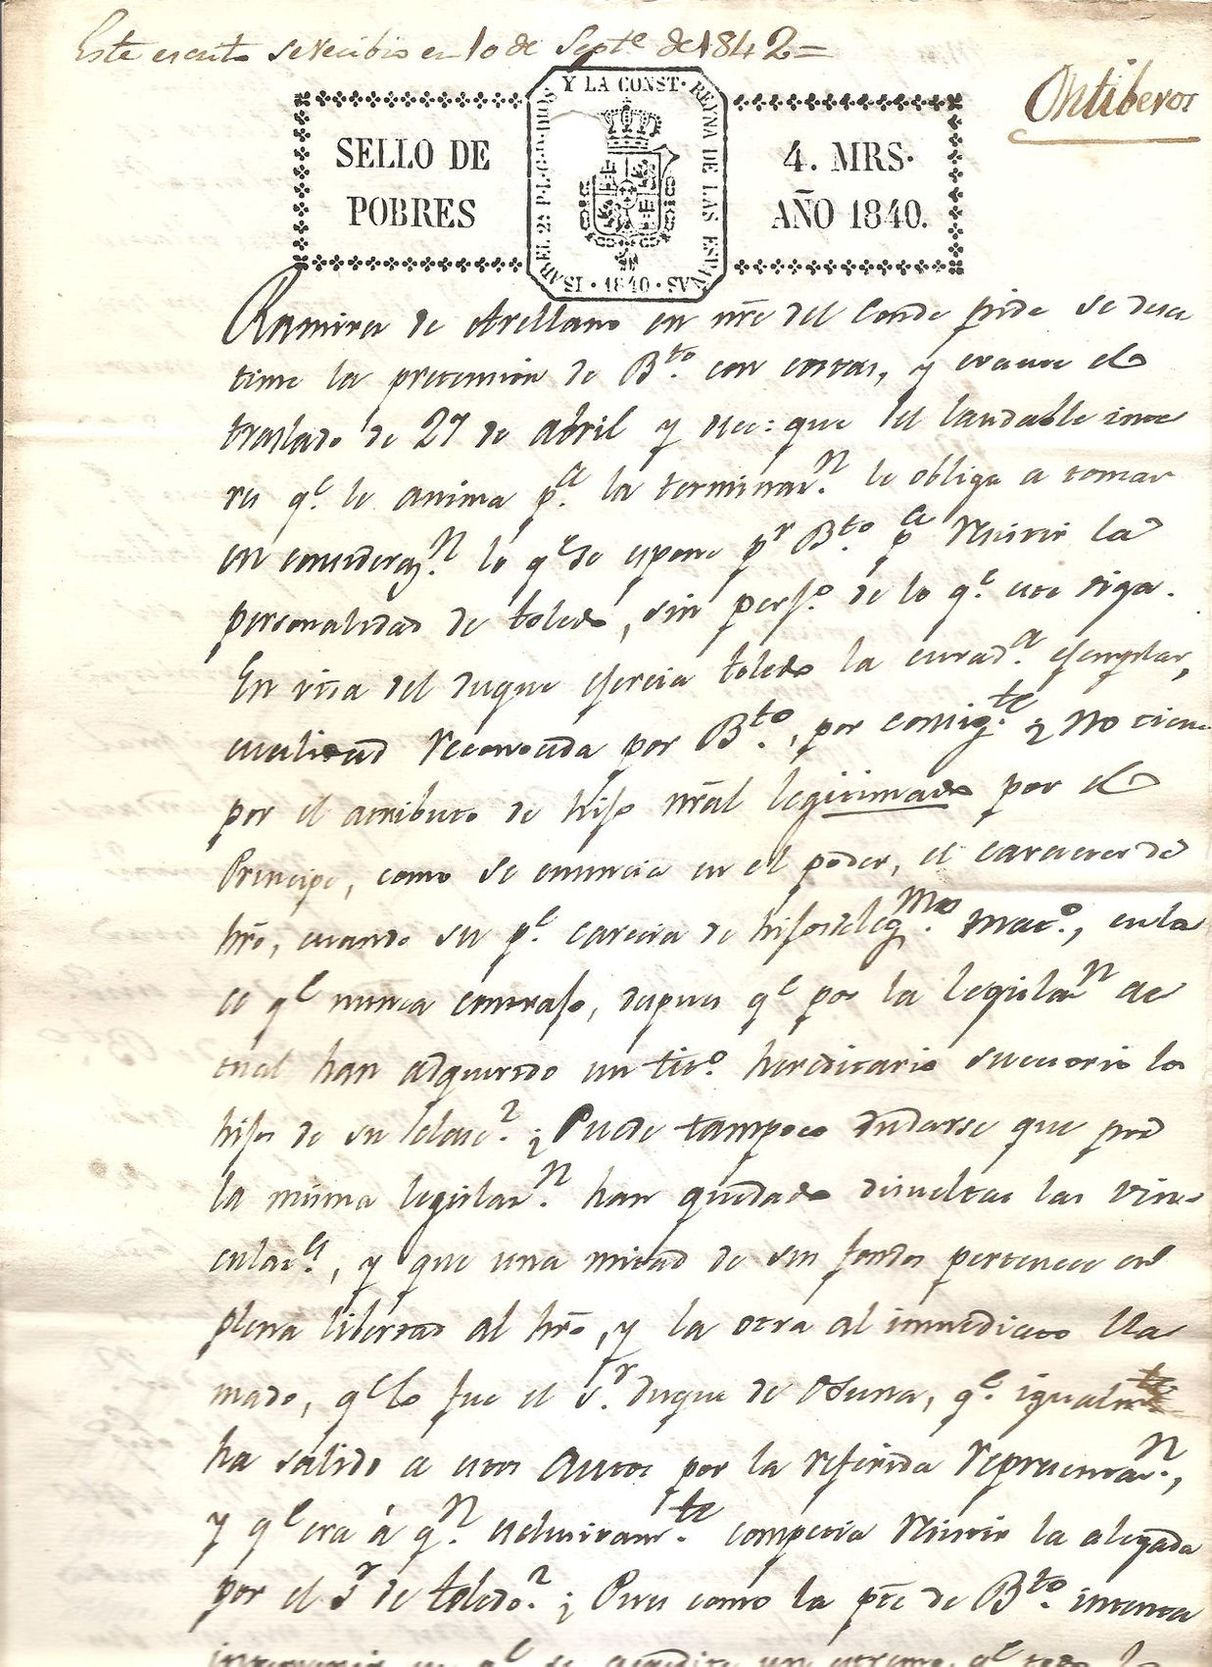 Este escrito se recibio en 10 de Septe de 1842=
Ontiberos
SELLO DE
POBRES
ISABEL 2ª P.L.G.D.DIOS Y LA CONST. REYNA DE LAS ESPAÑAS · 1840 ·
4. MRS.
AÑO 1840.
Ramirez de Arellano en nre del Conde pide se deses
time la pretension de Bto. con costas, y evacue el
traslado de 27 de abril y dice: que el laudable inte
res qe. le anima pa. la terminan. le obliga a tomar
en consideran. lo qe se espone pr Bto. pa resistir la
personalidad de toledo, sin perjo. de lo qe. este diga.
En vida del duque ejercia toledo la curada. ejemplar,
cualidad reconocida por Bto., por consigte. ¿ no tiene
por el atributo de hijo nral legitimado por el
Principe, como se enuncia en el poder, el caracter de
hro, cuando su pe. carecia de hijos de legmo. mato., enla
ce qe nunca contrajo, despues qe por la legislan ac
tual han adquirido un tito. hereditario sucesorio los
hijos de su clase? ¿Puede tampoco dudarse que por
la misma legislan. han quedado disueltas las vin
culas., y que una mitad de sus fondos pertenece en
plena libertad al hro, y la otra al inmediato lla
mado, qe lo fue el Sr duque de Osuna, qe. igualmte
ha salido a estos autos por la referida representan.,
y qe era á qn. esclusivamte. competia resistir la alegada
por el Sr de toledo? ¿ Pues como la pte de Bto. intenta
intervenir en qe se acredite un estremo, qe todo lo